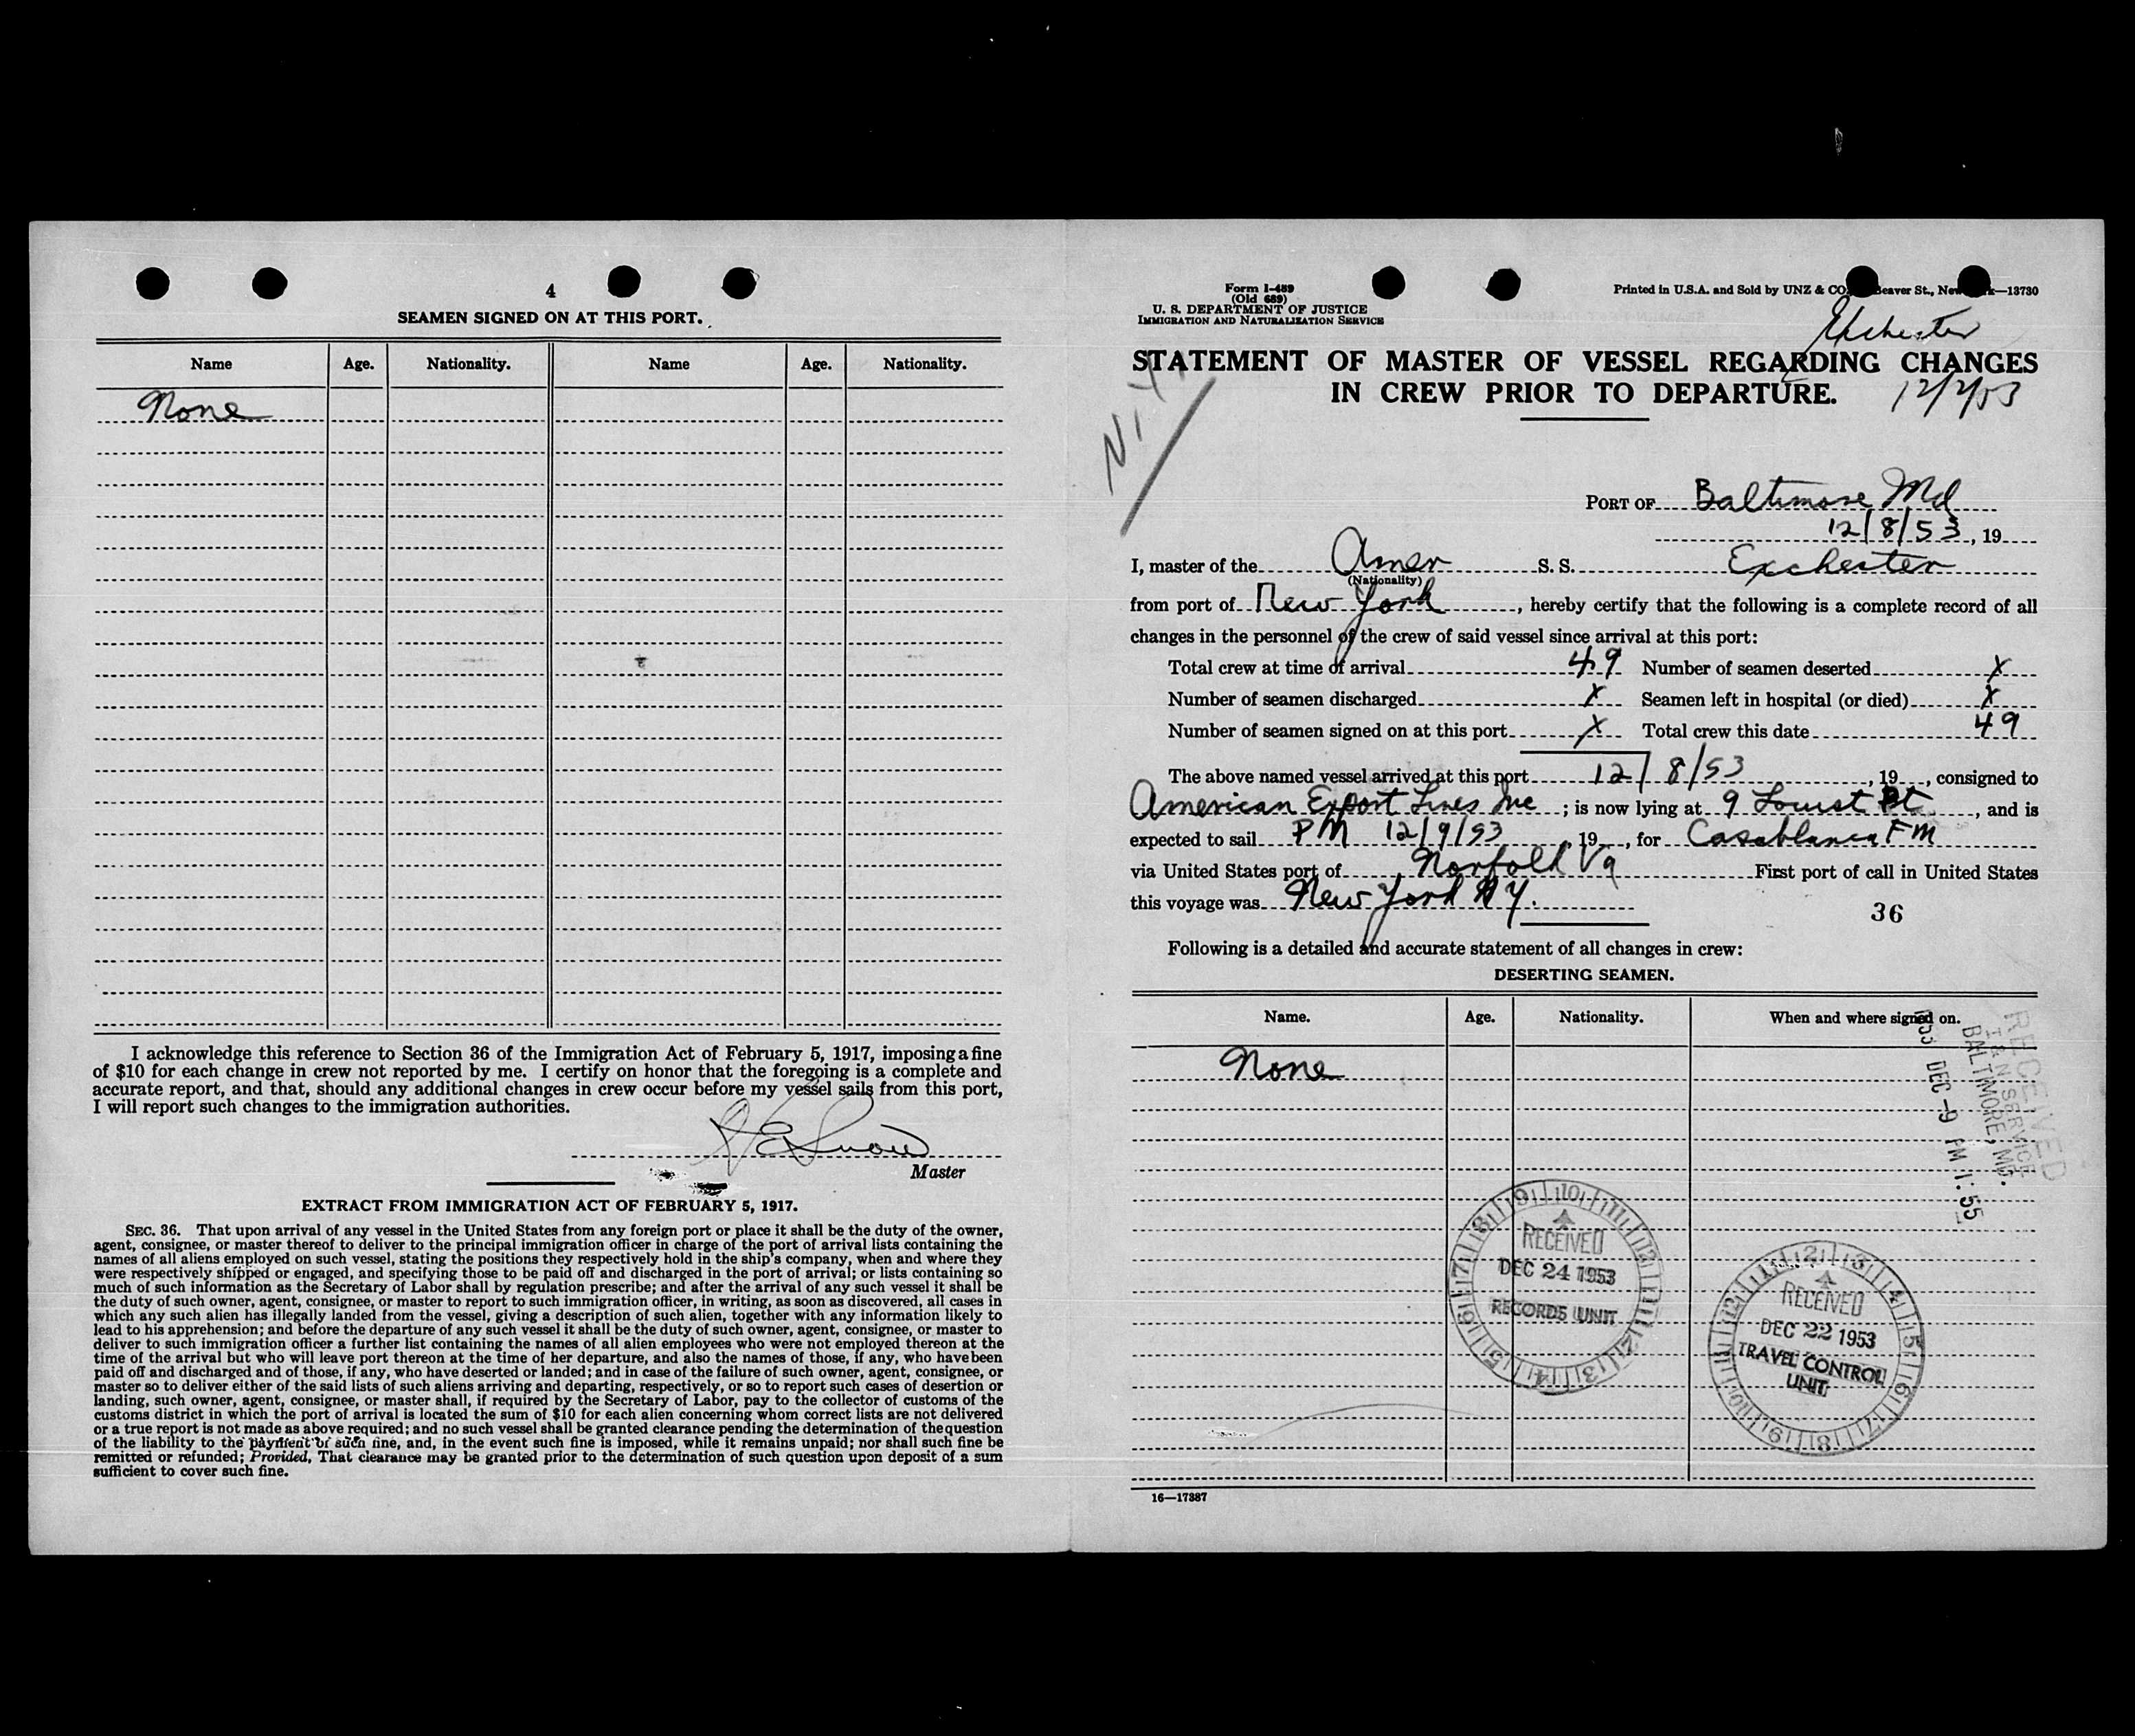 4
SEAMEN SIGNED ON AT THIS PORT.
Name Age. Nationality. Name Age. Nationality.
None
I acknowledge this reference to Section 36 of the Immigration Act of February 5, 1917, imposing a fine
of $10 for each change in crew not reported by me. I certify on honor that the foregoing is a complete and
accurate report, and that, should any additional changes in crew occur before my vessel sails from this port,
I will report such changes to the immigration authorities.
Master
EXTRACT FROM IMMIGRATION ACT OF FEBRUARY 5, 1917.
SEC. 36. That upon arrival of any vessel in the United States from any foreign port or place it shall be the duty of the owner,
agent, consignee, or master thereof to deliver to the principal immigration officer in charge of the port of arrival lists containing the
names of all aliens employed on such vessel, stating the positions they respectively hold in the ship's company, when and where they
were respectively shipped or engaged, and specifying those to be paid off and discharged in the port of arrival; or lists containing so
much of such information as the Secretary of Labor shall by regulation prescribe; and after the arrival of any such vessel it shall be
the duty of such owner, agent, consignee, or master to report to such immigration officer, in writing, as soon as discovered, all cases in
which any such alien has illegally landed from the vessel, giving a description of such alien, together with any information likely to
lead to his apprehension; and before the departure of any such vessel it shall be the duty of such owner, agent, consignee, or master to
deliver to such immigration officer a further list containing the names of all alien employees who were not employed thereon at the
time of the arrival but who will leave port thereon at the time of her departure, and also the names of those, if any, who have been
paid off and discharged and of those, if any, who have deserted or landed; and in case of the failure of such owner, agent, consignee, or
master so to deliver either of the said lists of such aliens arriving and departing, respectively, or so to report such cases of desertion or
landing, such owner, agent, consignee, or master shall, if required by the Secretary of Labor, pay to the collector of customs of the
customs district in which the port of arrival is located the sum of $10 for each alien concerning whom correct lists are not delivered
or a true report is not made as above required; and no such vessel shall be granted clearance pending the determination of the question
of the liability to the payment of such fine, and, in the event such fine is imposed, while it remains unpaid; nor shall such fine be
remitted or refunded; Provided, That clearance may be granted prior to the determination of such question upon deposit of a sum
sufficient to cover such fine.
Form I-489
(Old 689)
U. S. DEPARTMENT OF JUSTICE
IMMIGRATION AND NATURALIZATION SERVICE
Printed in U.S.A. and Sold by UNZ & CO. Beaver St., New —13730
Exchester
STATEMENT OF MASTER OF VESSEL REGARDING CHANGES
IN CREW PRIOR TO DEPARTURE.
12/2/53
PORT OF Baltimore Md
12/8/53, 19
I, master of the Amer S. S. Exchester
(Nationality)
from port of New York, hereby certify that the following is a complete record of all
changes in the personnel of the crew of said vessel since arrival at this port:
Total crew at time of arrival 49 Number of seamen deserted X
Number of seamen discharged X Seamen left in hospital (or died) X
Number of seamen signed on at this port X Total crew this date 49
The above named vessel arrived at this port 12/8/53, 19, consigned to
American Export Lines Inc; is now lying at 9 Locust Pt, and is
expected to sail PM 12/9/53, 19, for Casablanca FM
via United States port of Norfolk Va First port of call in United States
this voyage was New York NY.
36
Following is a detailed and accurate statement of all changes in crew:
DESERTING SEAMEN.
Name. Age. Nationality. When and where signed on.
None
RECEIVED
I & N SERVICE
BALTIMORE, MD.
1953 DEC -9 PM 1:55
RECEIVED
DEC 24 1953
RECORDS UNIT
RECEIVED
DEC 22 1953
TRAVEL CONTROL
UNIT
16—17387